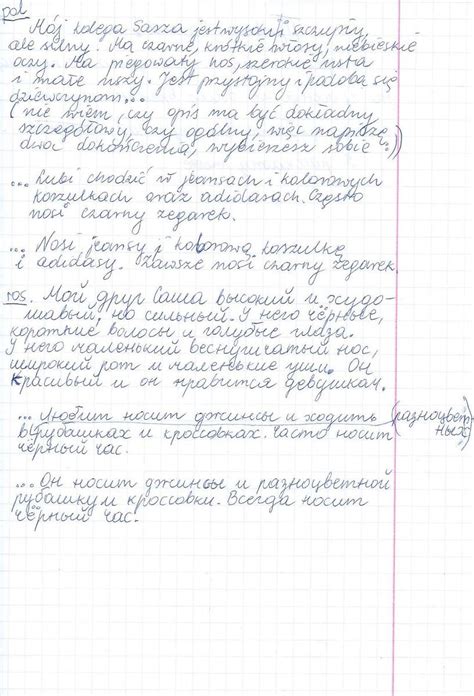 pol
Mój kolega Sasza jest wysoki i szczupły,
ale silny. Ma czarne, krótkie włosy, niebieskie
oczy. Ma piegowaty nos, szerokie usta
i małe uszy. Jest przystojny i podoba się
dziewczynom...
(nie wiem, czy opis ma być dokładny,
szczegółowy, czy ogólny, więc napiszę
dwa dokończenia, wybierzesz sobie :))
... Lubi chodzić w jeansach i kolorowych
koszulkach oraz adidasach. Często
nosi czarny zegarek.
... Nosi jeansy i kolorową koszulkę
i adidasy. Zawsze nosi czarny zegarek.
ros. Мой друг Саша высокий и худо-
щавый, но сильный. У него чёрные,
короткие волосы и голубые глаза.
У него маленький веснущатый нос,
широкий рот и маленькие уши. Он
красивый и он нравится девушкам.
... Любит носит джинсы и ходить (разноцвет-
в рубашках и кроссовках. Часто носит ных)
чёрный час.
... Он носит джинсы и разноцветной
рубашку и кроссовки. Всегда носит
чёрный час.